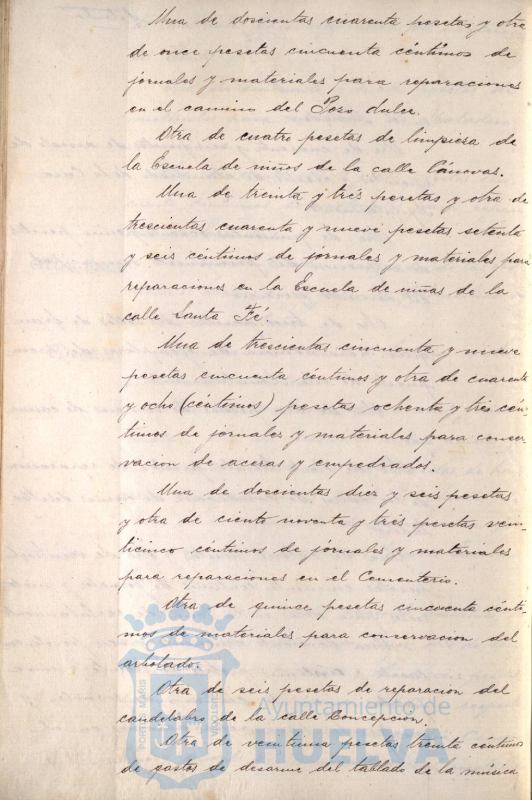 Una de doscientas cuarenta pesetas y otra
de once pesetas cincuenta céntimos de
jornales y materiales para reparaciones
en el camino del Pozo dulce.
Otra de cuatro pesetas de limpieza de
la Escuela de niños de la calle Cánovas.
Una de treinta y tres pesetas y otra de
trescientas cuarenta y nueve pesetas setenta
y seis céntimos de jornales y materiales para
reparaciones en la Escuela de niñas de la
calle Santa Fé.
Una de trescientas cincuenta y nueve
pesetas cincuenta céntimos y otra de cuarenta
y ocho (céntimos) pesetas ochenta y tres cén-
timos de jornales y materiales para conser-
vacion de aceras y empedrados.
Una de doscientas diez y seis pesetas
y otra de ciento noventa y tres pesetas vein-
ticinco céntimos de jornales y materiales
para reparaciones en el Cementerio.
Otra de quince pesetas cincuenta cénti-
mos de materiales para conservacion del
arbolado.
Otra de seis pesetas de reparacion del
candelabro de la calle Concepcion.
Otra de veintiuna pesetas treinta céntimos
de gastos de desarme del tablado de la música
Ayuntamiento de
HUELVA